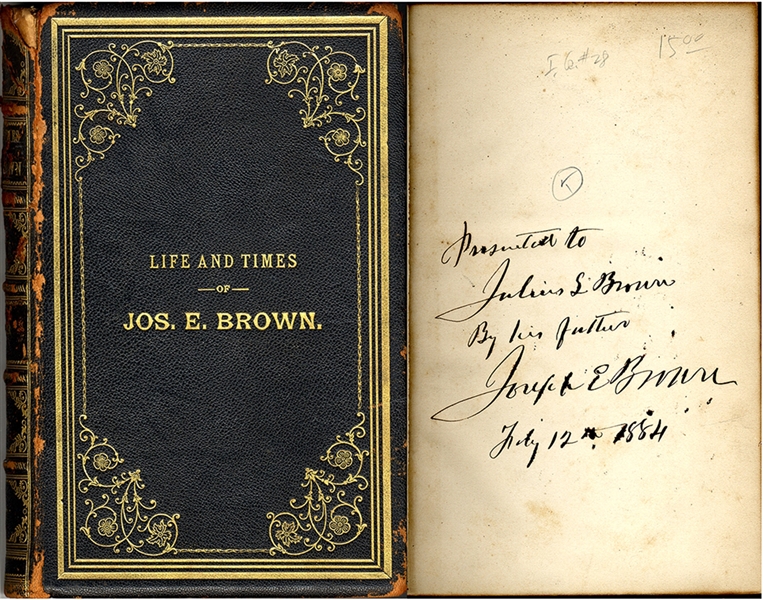 LIFE AND TIMES
—OF—
JOS. E. BROWN.
15 00
Presented to
Julius L Brown
By his father
Joseph E Brown
12th 1884